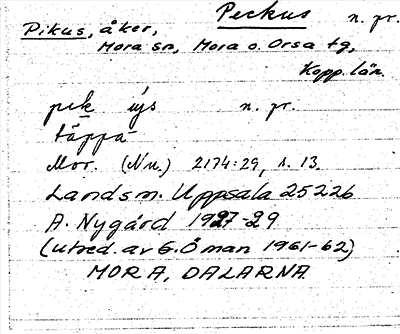 Peckus n. pr.
Pikus, åker,
Mora sn, Mora o. Orsa tg,
Kopp. län.
pek n. pr.
täppa
Mor. (Nu.) 2174:29, s. 13.
Landsm. Uppsala 25226
A. Nygård 1927-29
(utred. av G. Öman 1961-62)
MORA, DALARNA